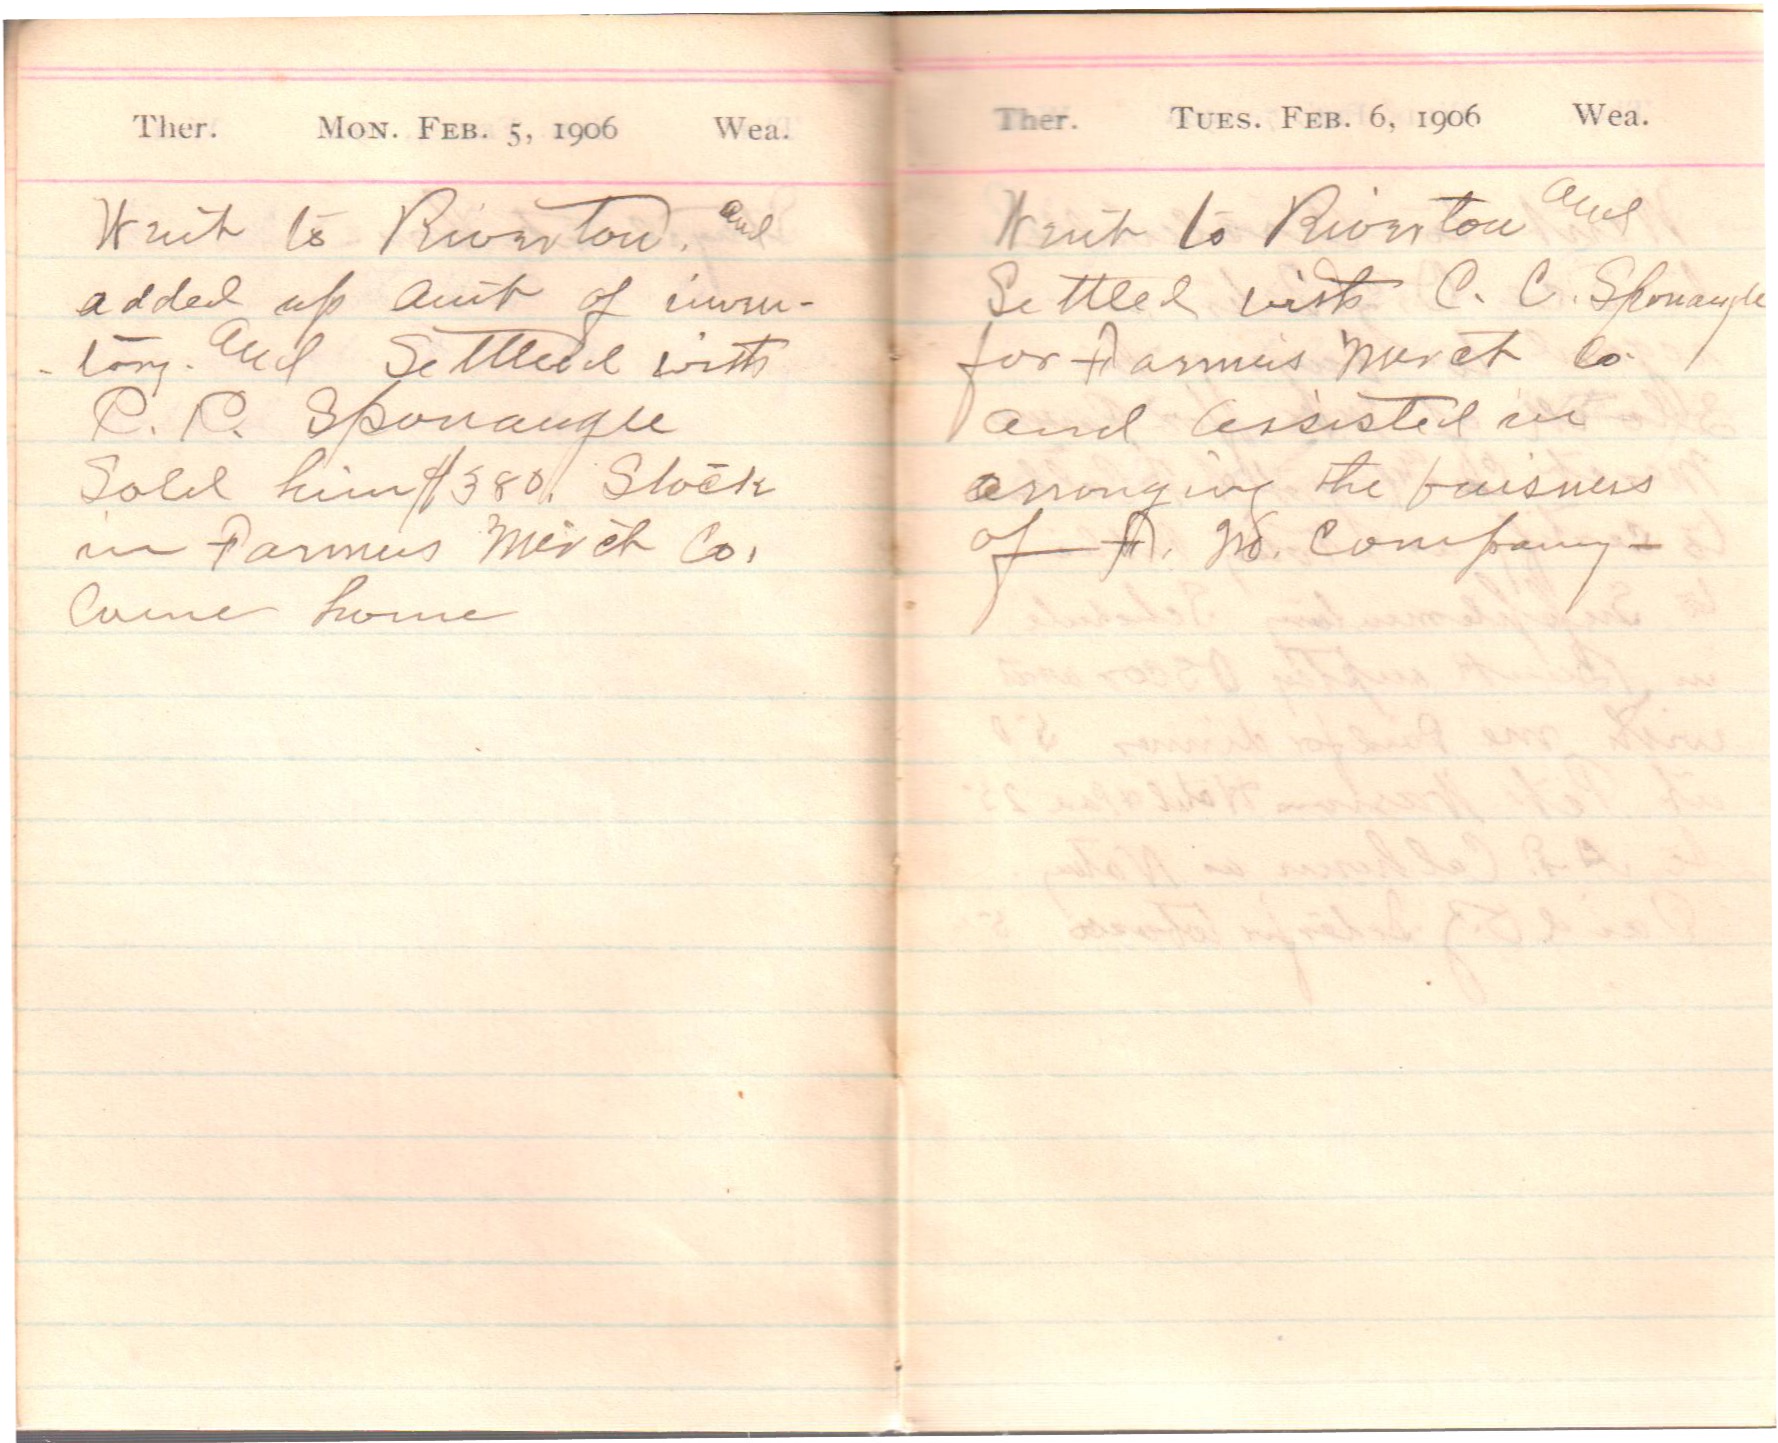 Ther. MON. FEB. 5, 1906 Wea.
Went to Riverton. and
added up amt of inven-
-tory. and Settled with
C. C. Sponaugle
Sold him $380. Stock
in Farmers Merch Co.
Came home
Ther. TUES. FEB. 6, 1906 Wea.
Went to Riverton and
Settled with C. C. Sponaugle
for Farmers Merch Co.
and assisted in
arranging the buisness
of F. M. Company